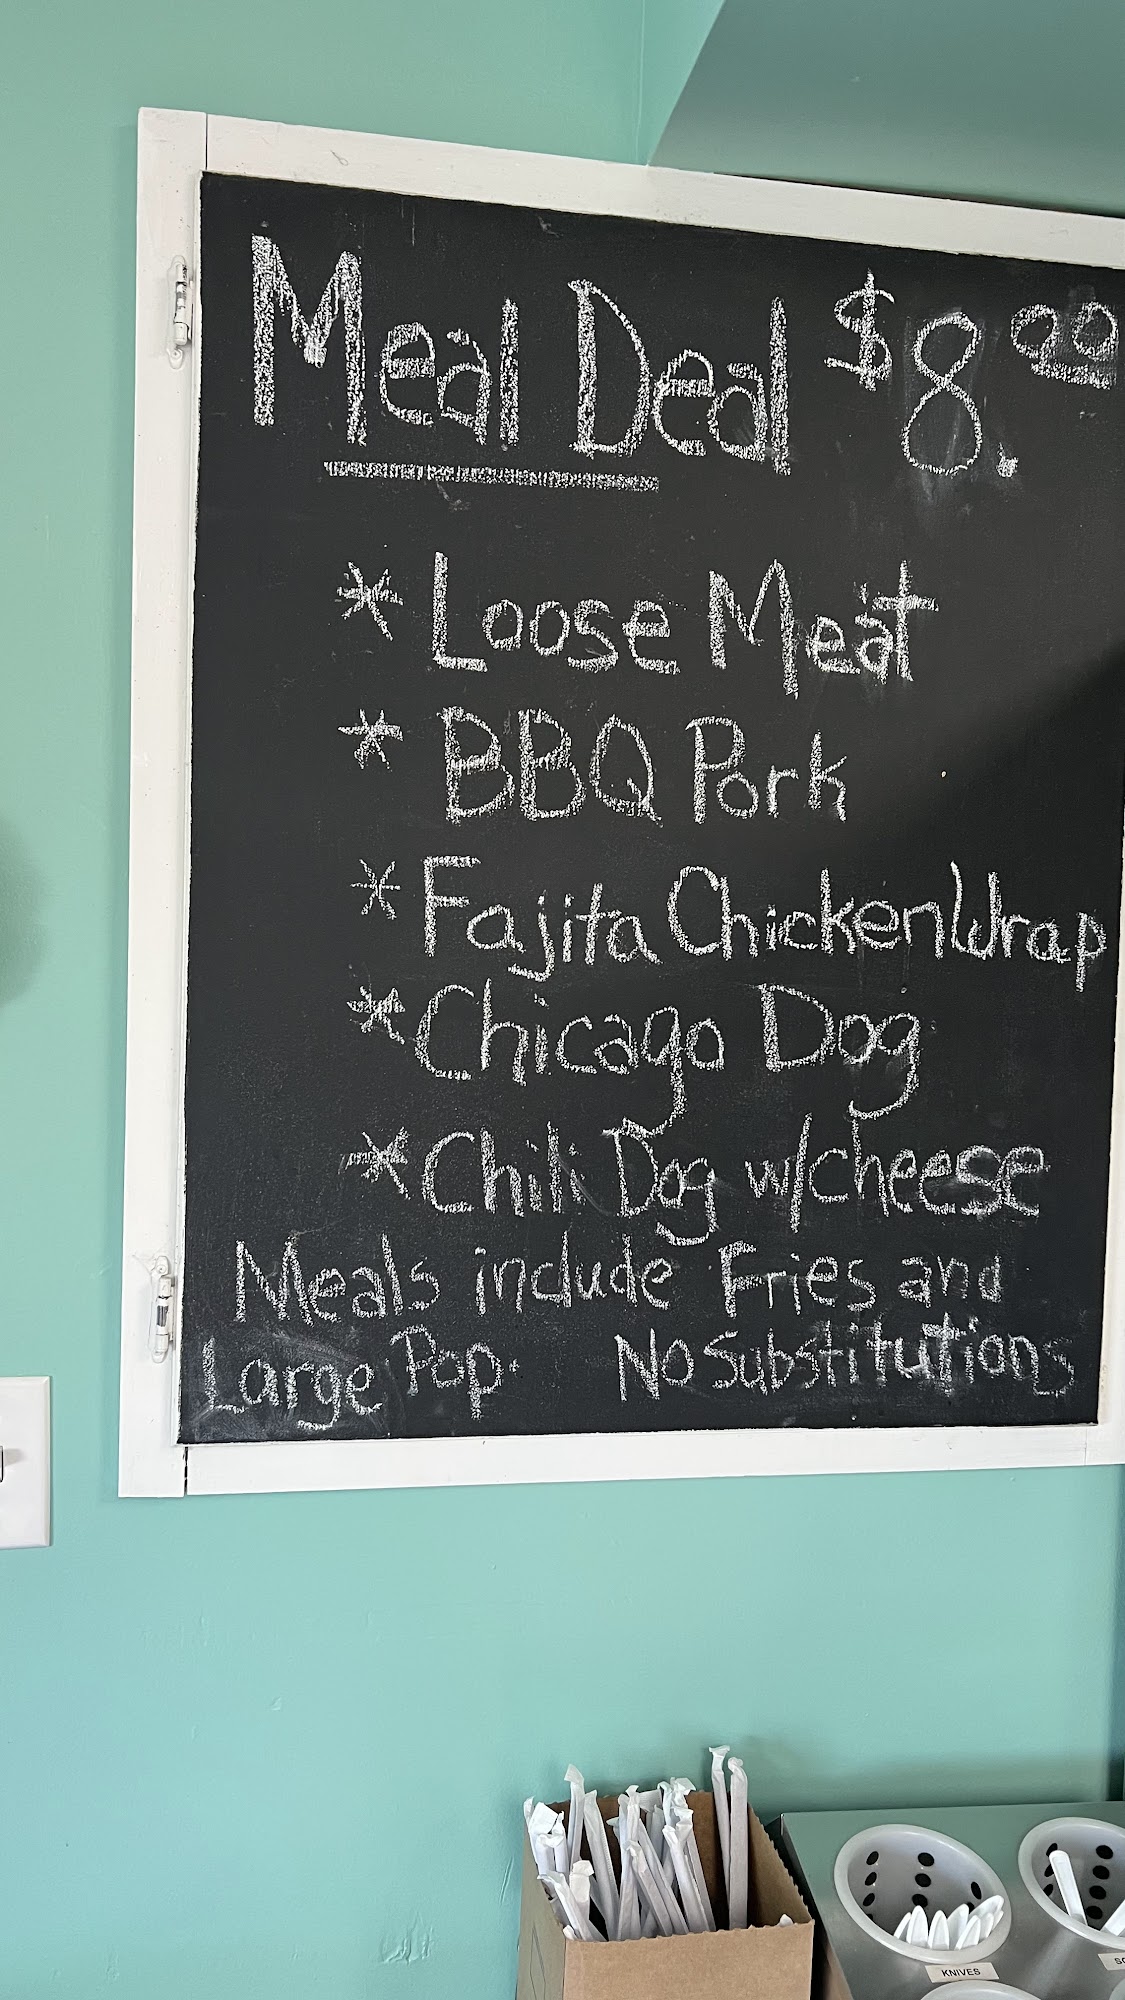 Meal Deal $8.00
* Loose Meat
* BBQ Pork
* Fajita Chicken Wrap
* Chicago Dog
* Chili Dog w/cheese
Meals include Fries and
Large Pop. No Substitutions
KNIVES